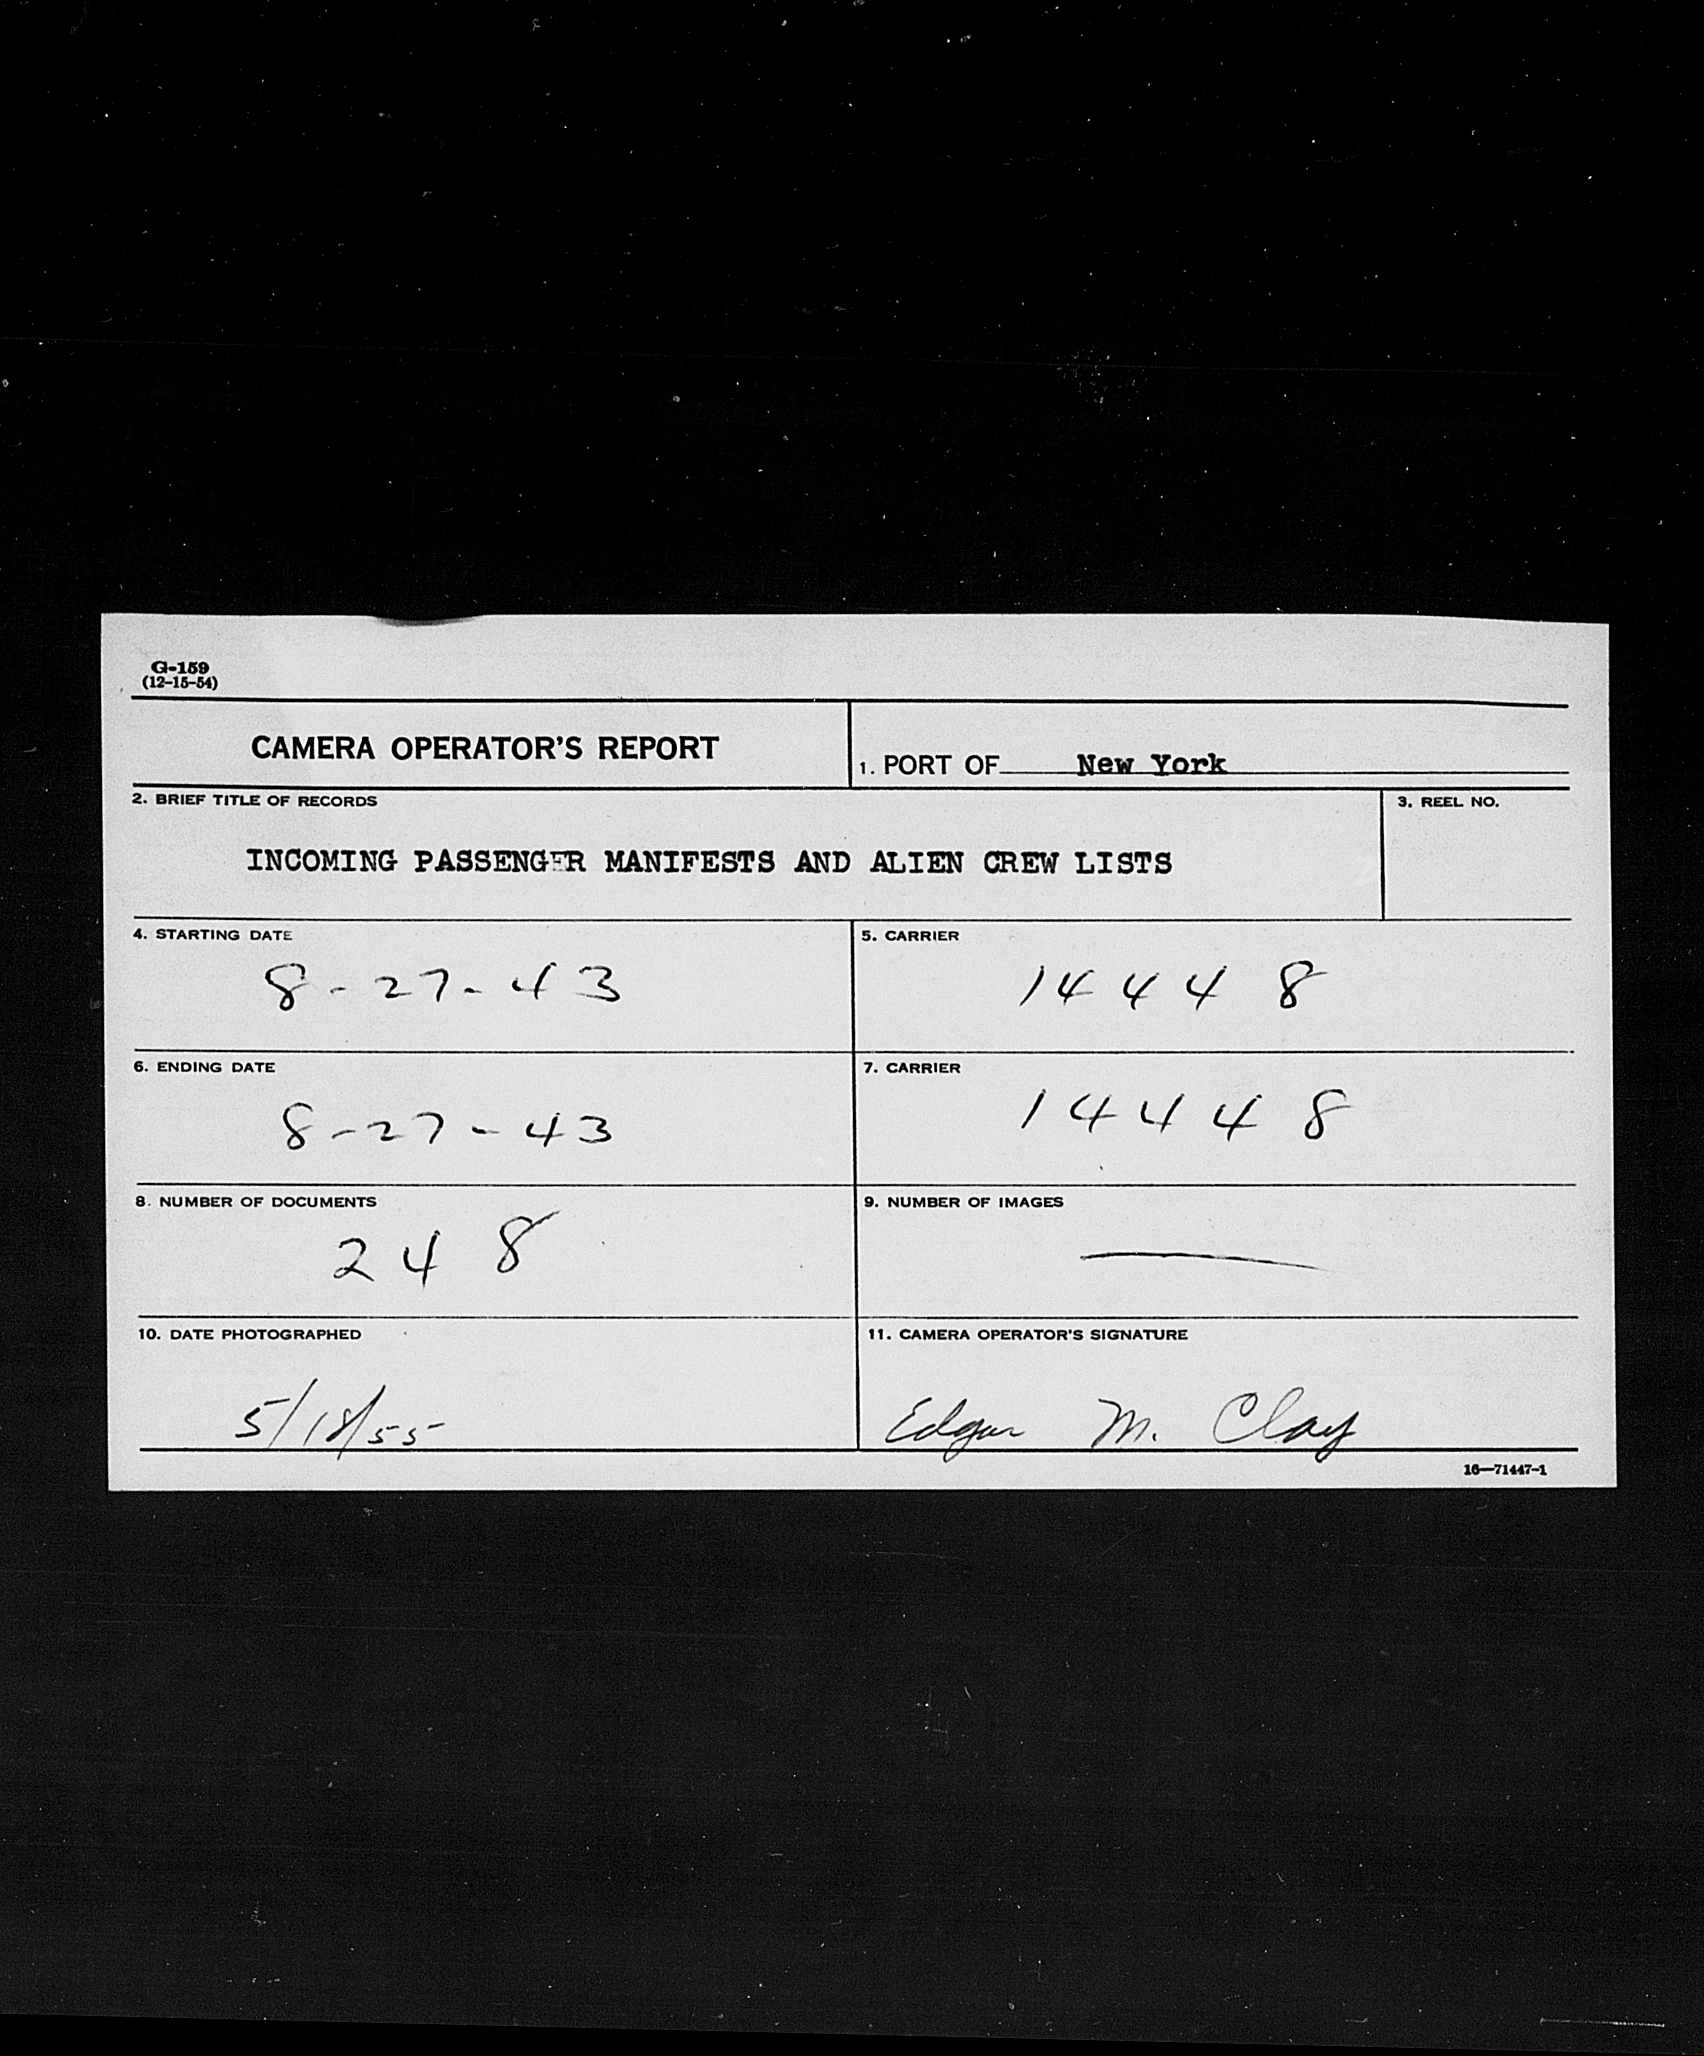 G-159
(12-15-54)
CAMERA OPERATOR'S REPORT
1. PORT OF New York
2. BRIEF TITLE OF RECORDS
3. REEL NO.
INCOMING PASSENGER MANIFESTS AND ALIEN CREW LISTS
4. STARTING DATE
8-27-43
5. CARRIER
14448
6. ENDING DATE
8-27-43
7. CARRIER
14448
8. NUMBER OF DOCUMENTS
248
9. NUMBER OF IMAGES
—
10. DATE PHOTOGRAPHED
5/18/55
11. CAMERA OPERATOR'S SIGNATURE
Edgar M. Clay
16—71447-1